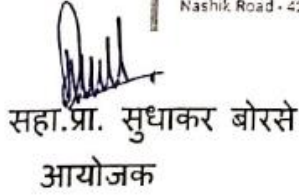 Nashik Road - 42
सहा.प्रा. सुधाकर बोरसे
आयोजक